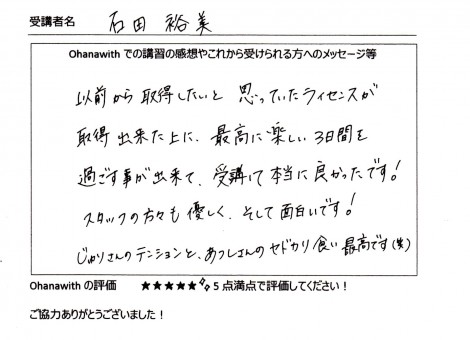 受講者名 石田 裕美
Ohanawith での講習の感想やこれから受けられる方へのメッセージ等
以前から取得したいと思っていたライセンスが
取得出来た上に、最高に楽しい3日間を
過ごす事が出来て、受講して本当に良かったです!
スタッフの方々も優しく、そして面白いです!
じゅりさんのテンションと、あつしさんのセドカリ食い最高です(笑)
Ohanawith の評価 ★★★★★ 5 点満点で評価してください!
ご協力ありがとうございました!